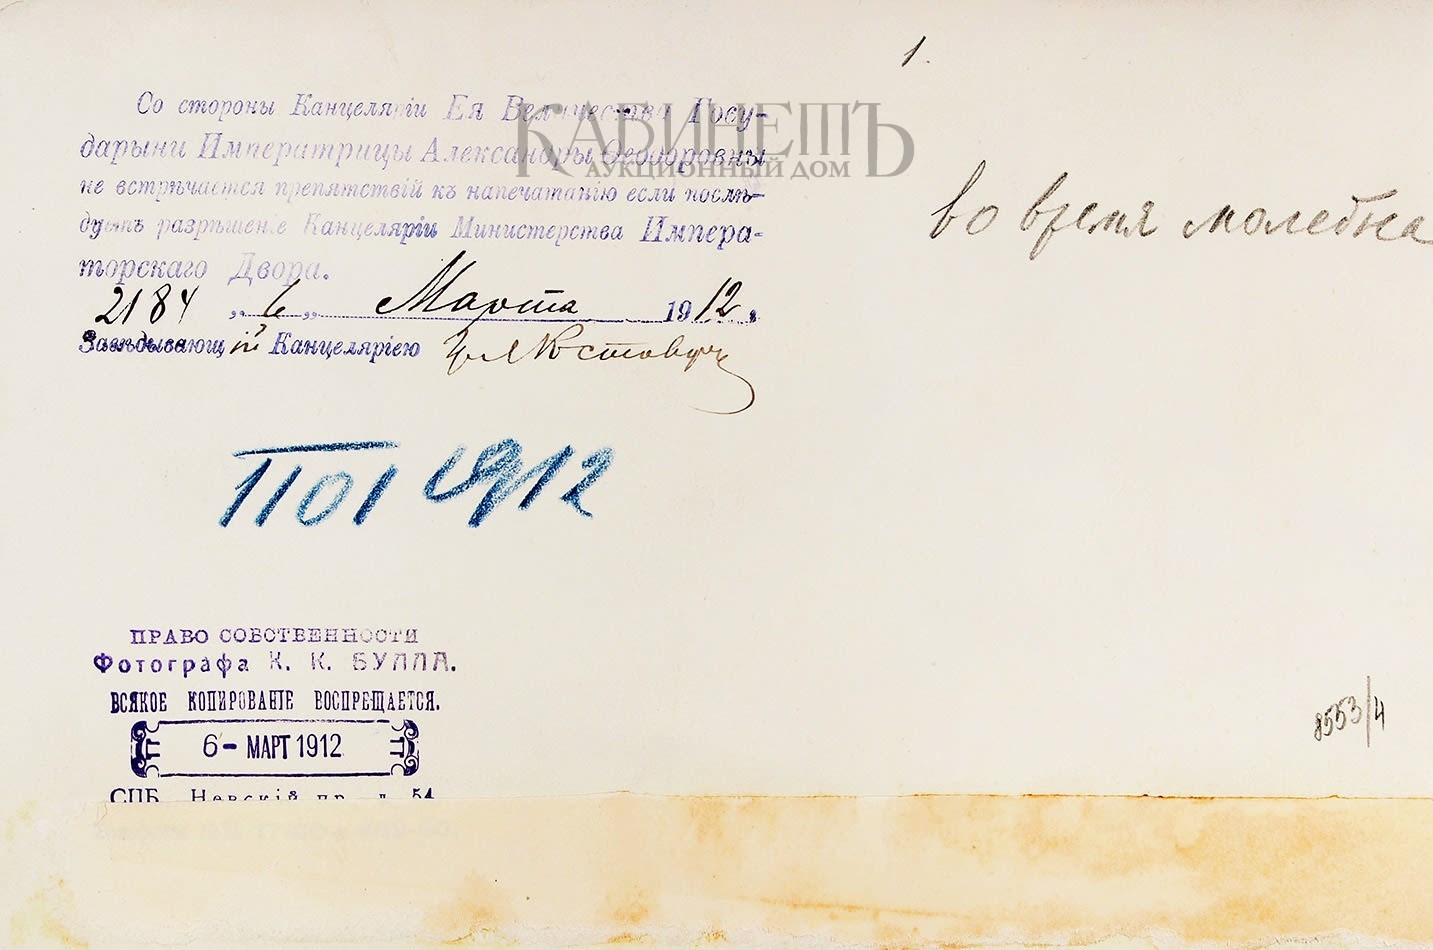 1.
Со стороны Канцеляріи Ея Величества Госу-
дарыни Императрицы Александры Ѳеодоровны
не встрѣчается препятствій къ напечатанію если послѣ-
дуетъ разрѣшеніе Канцеляріи Министерства Импера-
торскаго Двора.
2184 „6„ Марта 1912.
Завѣдывающій Канцеляріею
КАБИНЕТЪ
АУКЦИОННЫЙ ДОМ
во время молебна
1912
ПРАВО СОБСТВЕННОСТИ
Фотографа К. К. БУЛЛА.
ВСЯКОЕ КОПИРОВАНІЕ ВОСПРЕЩАЕТСЯ.
6- МАРТ 1912
СПБ. Невскій пр. д. 54
8553/4